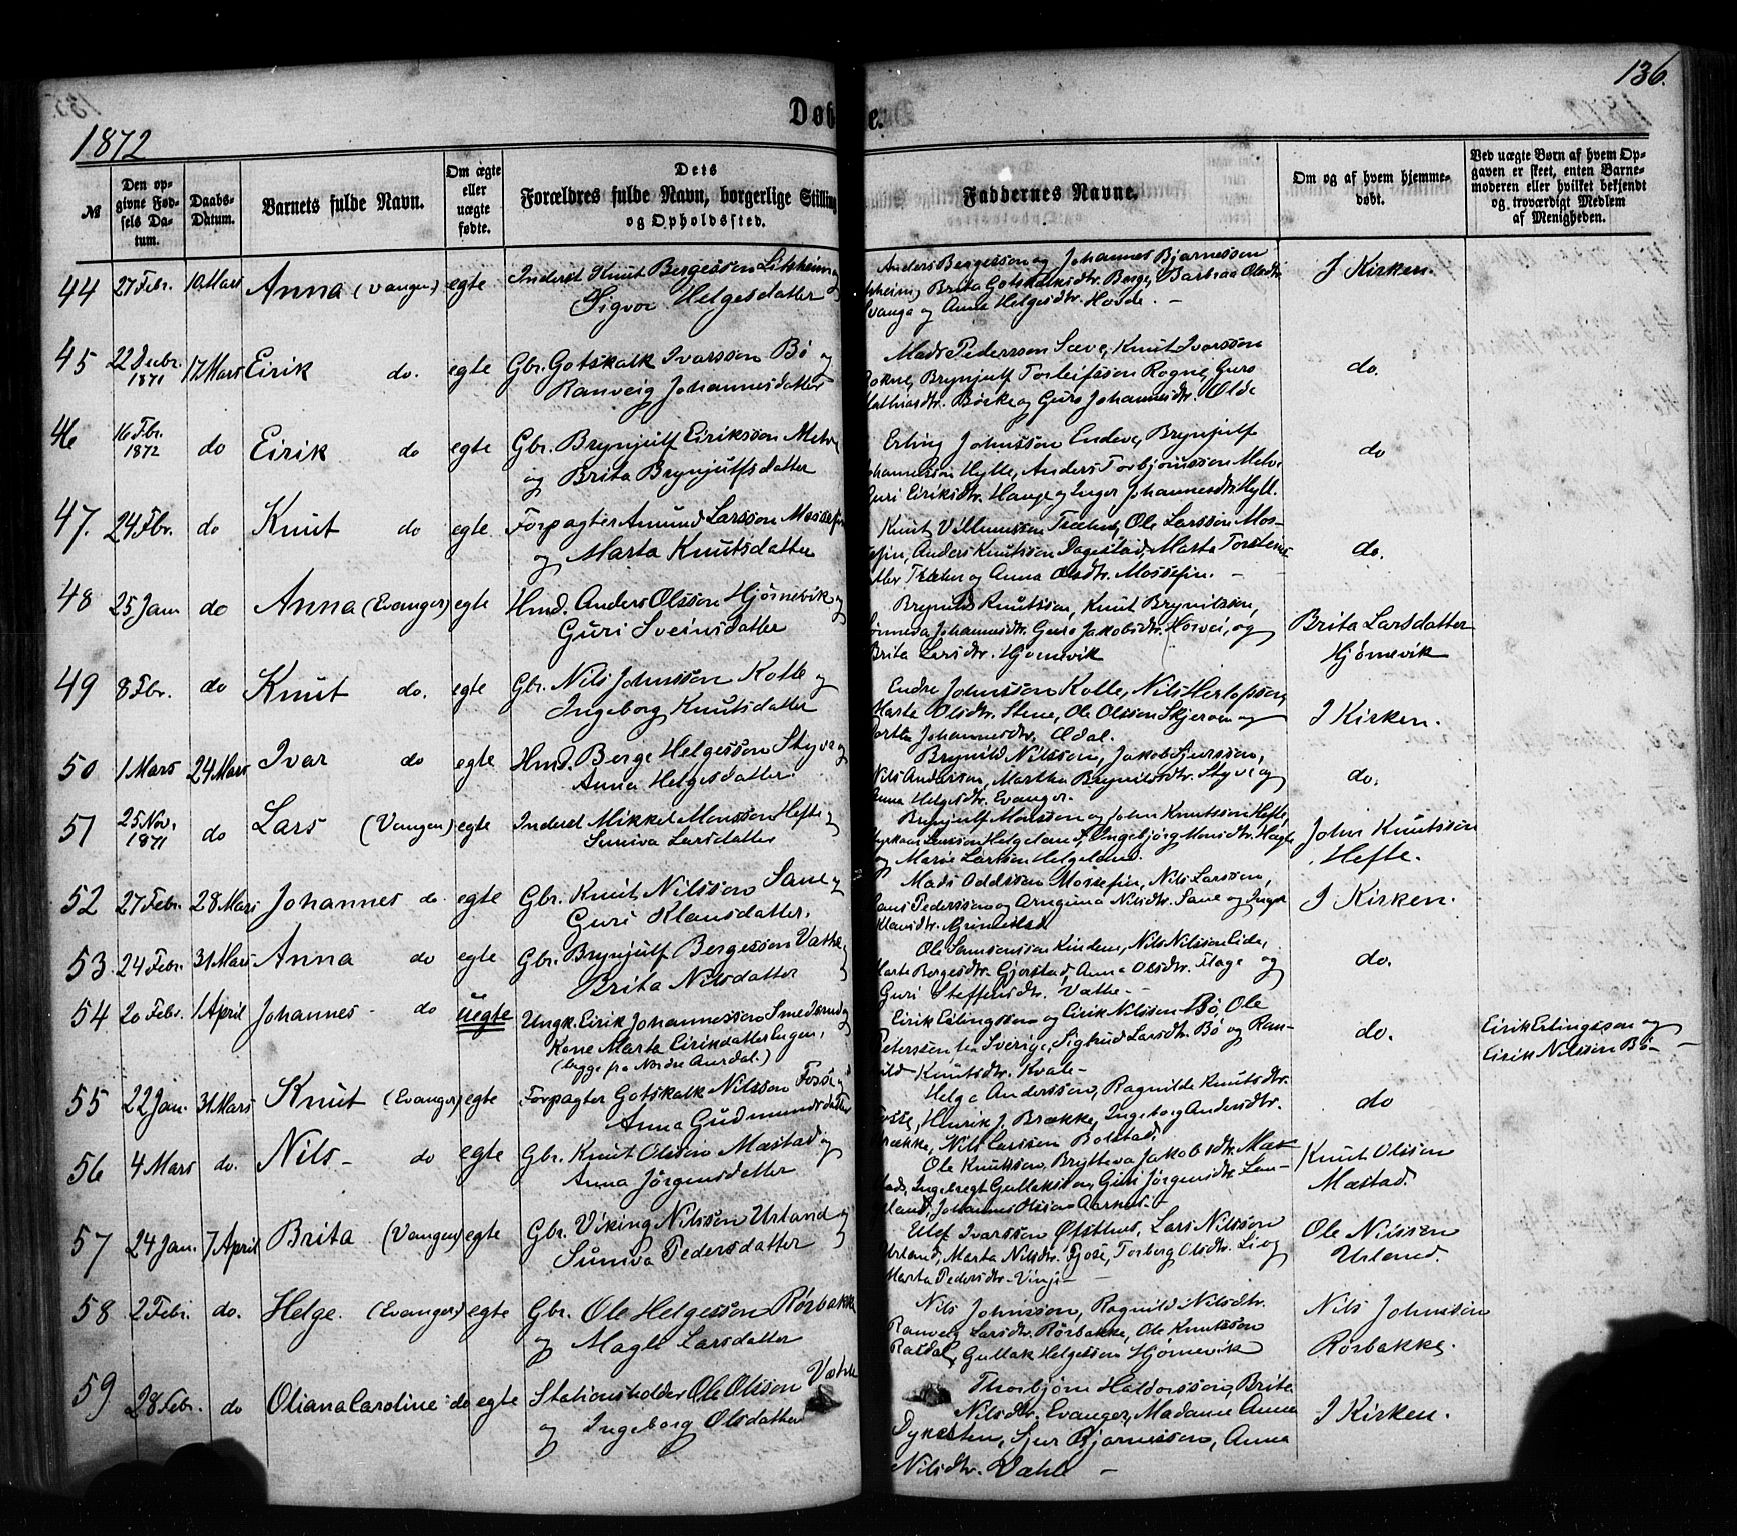 136.
Døb e.
1872
№
Den op-
givne Fød-
sels Da-
tum.
Daabs-
Datum.
Barnets fulde Navn.
Om ægte
eller
uægte
fødte.
Dets
Forældres fulde Navn, borgerlige Stilling
og Opholdssted.
Faddernes Navne.
Om og af hvem hjemme-
døbt.
Ved uægte Børn af hvem Op-
gaven er skeet, enten Barne-
moderen eller hvilket bekjendt
og troværdigt Medlem
af Menigheden.
44 27 Febr. 10 Mars Anna (Vangen) egte Inderst Knut Bergesson Litsheim og
Sigvor Helgesdatter
Anders Bergesson og Johannes Bjarnesson
Brita Gotskalksdtr. Berge, Barbraa Olsdtr.
og Anna Helgesdtr. Hovde. -
I Kirken.
45 22 Decbr. 1871 17 Mars Eirik do. egte Gbr. Gotskalk Ivarsson Bø og
Ranveig Johannesdatter
Mads Pedersson Sæve, Knut Ivarsson
Rokne, Brynjulf Torleifsson Rogne, Guro
Mathiasdtr. Børke og Guro Johannesdtr. Olde
do.
46 16 Fbr. 1872 do Eirik do egte Gbr. Brynjulf Eiriksson Melve
og Brita Brynjulfsdatter
Erling Johnsson Endeve, Brynjulf
Johannesson Hylle, Anders Torbjørnsson Melve
Guri Eiriksdtr. Hauge og Inger Johannesdtr. Hyll.
do
47. 24 Fbr. do Knut do egte Forpagter Amund Larsson Mossefin
og Marta Knutsdatter
Knut Villumsson Træen, Ole Larsson Mos-
sefin, Anders Knutsson Dagestad, Marta Torstens-
datter Træen og Anna Olsdtr. Mossefin. -
do.
48 25 Jan do Anna (Evanger) egte Hmd. Anders Olsson Hjørnevik og
Guri Sveinsdatter
Brynild Knutsson, Knut Brynilsson,
Johannesdtr. Guro Jakobsdtr. Horvei, og
Brita Larsdtr. Hjørnevik
Brita Larsdatter
Hjørnevik
49 8 Fbr. do Knut do. egte Gbr. Nils Johnsson Kolle og
Ingeborg Knutsdatter
Endre Johnsson Kolle, Nils Herlofsson,
Marta Olsdtr. Stene, Ole Olsson Skjerven og
Johannesdtr. Ødal.
I Kirken.
50 1 Mars 24 Mars Ivar do egte Hmd. Berge Helgesson Styve og
Anna Helgesdatter.
Brynild Nilsson, Jakob Sjursson,
Nils Andersson, Martha Brynildsdtr. Styve og
Anna Helgesdtr. Evanger.
do.
51 25 Nov. 1871 do Lars (Vangen) egte Inderst Mikkel Monsson Hefte og
Sunniva Larsdatter
Brynjulf Monsson og John Knutsson Hefte,
Larsson Helgeland, Ingebjørg Monsdtr.
og Marie Larsdtr Helgeland.
John Knutsson
Hefte.
52 27 Febr. 28 Mars Johannes do. egte Gbr. Knut Nilsson Saue og
Guri Klausdatter.
Mads Oddsson Mossefin, Nils Larsson,
Pedersson og Arnguna Nilsdtr. Saue og
Klausdtr. Grimestad
I Kirken.
53. 24 Febr. 31 Mars Anna do egte Gbr. Brynjulf Bergesson Væthe og
Brita Nilsdatter
Ole Samsonsson Kinden, Nils Nilsson Eide,
Marte Bergesdtr. Gjerstad, Anna Olsdtr. Flage og
Guri Steffensdtr. Væthe -
do.
54 20 Febr. 1 April Johannes - do uegte Ungk. Eirik Johannesson Smedsrud og
Kone Marta Eiriksdatter Lugen,
(begge fra Nordre Aurdal.)
Eirik Erlingsson og Eirik Nilsson Bø, Ole
Petersson fra Sverige, Sigtrud Larsdtr. Bø og Ran-
Knutsdtr. Kvale -
do.
Eirik Erlingsson og
Eirik Nilsson Bø -
55 22 Jan. 31 Mars Knut (Evanger) egte Forpagter Gotskalk Nilsson Fosse og
Anna Gudmundsdatter
Helge Andersson, Ragnilde Knutsdtr.
Fosse, Henrik J. Brække, Ingeborg Andersdtr.
Brække, Nils Larssen Bolstad.
do
56 4 Mars do. Nils - do egte Gbr. Knut Olsson Mæstad og
Anna Jörgensdatter
Ole Knutsson, Bryteva Jakobsdtr. Mæ-
stad, Ingebregt Gullaksson, Guri Jörgensdtr.
Johannes Olsson
Knut Olsson
Mæstad.
57 24 Jan. 7 April Brita (Vangen) egte Gbr. Viking Nilsson Urland og
Sunniva Pedersdatter
Ivarsson Øfsthus, Lars Nilsson
Urland, Marta Nilsdtr. Fjose, Torberg Olsdtr. Li og
Marta Pedersdtr. Vinje -
Ole Nilsson
Urland.
58 2 Febr. do. Helge. (Evanger) egte Gbr. Ole Helgesson Rørbakke
og Magli Larsdatter
Nils Johnsson, Ragnild Nilsdtr.
Ranveig Larsdtr. Rørbakke, Ole Knutsson
Rasdal, Gullak Helgesson Hjørnevik
Nils Johnsson
Rørbakke.
59 28 Febr. do Oliana Caroline do egte Stationsholder Ole Olsson Væthe
og Ingeborg Olsdatter
Thorbjørn Haldorsson, Brita
Nilsdtr. Evanger, Madame Anna
Dyresten, Sjur Bjarnesson, Anna
Nilsdtr. Væthe -
I Kirken.